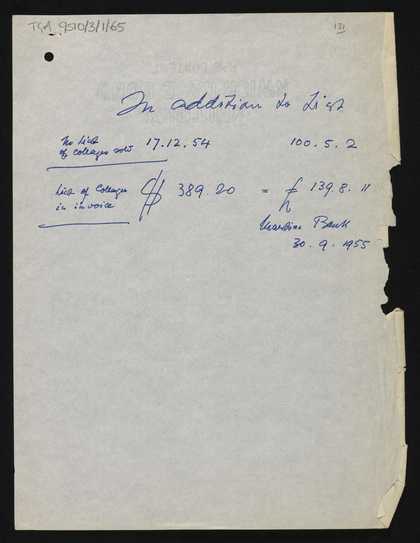 TGA 9510/3/1/65
131
In addition to List
The list
of collages sold 17.12.54 100.5.2
List of Collages
in invoice $ 389.20 = £ 139.8.11
Bank
30.9.1955